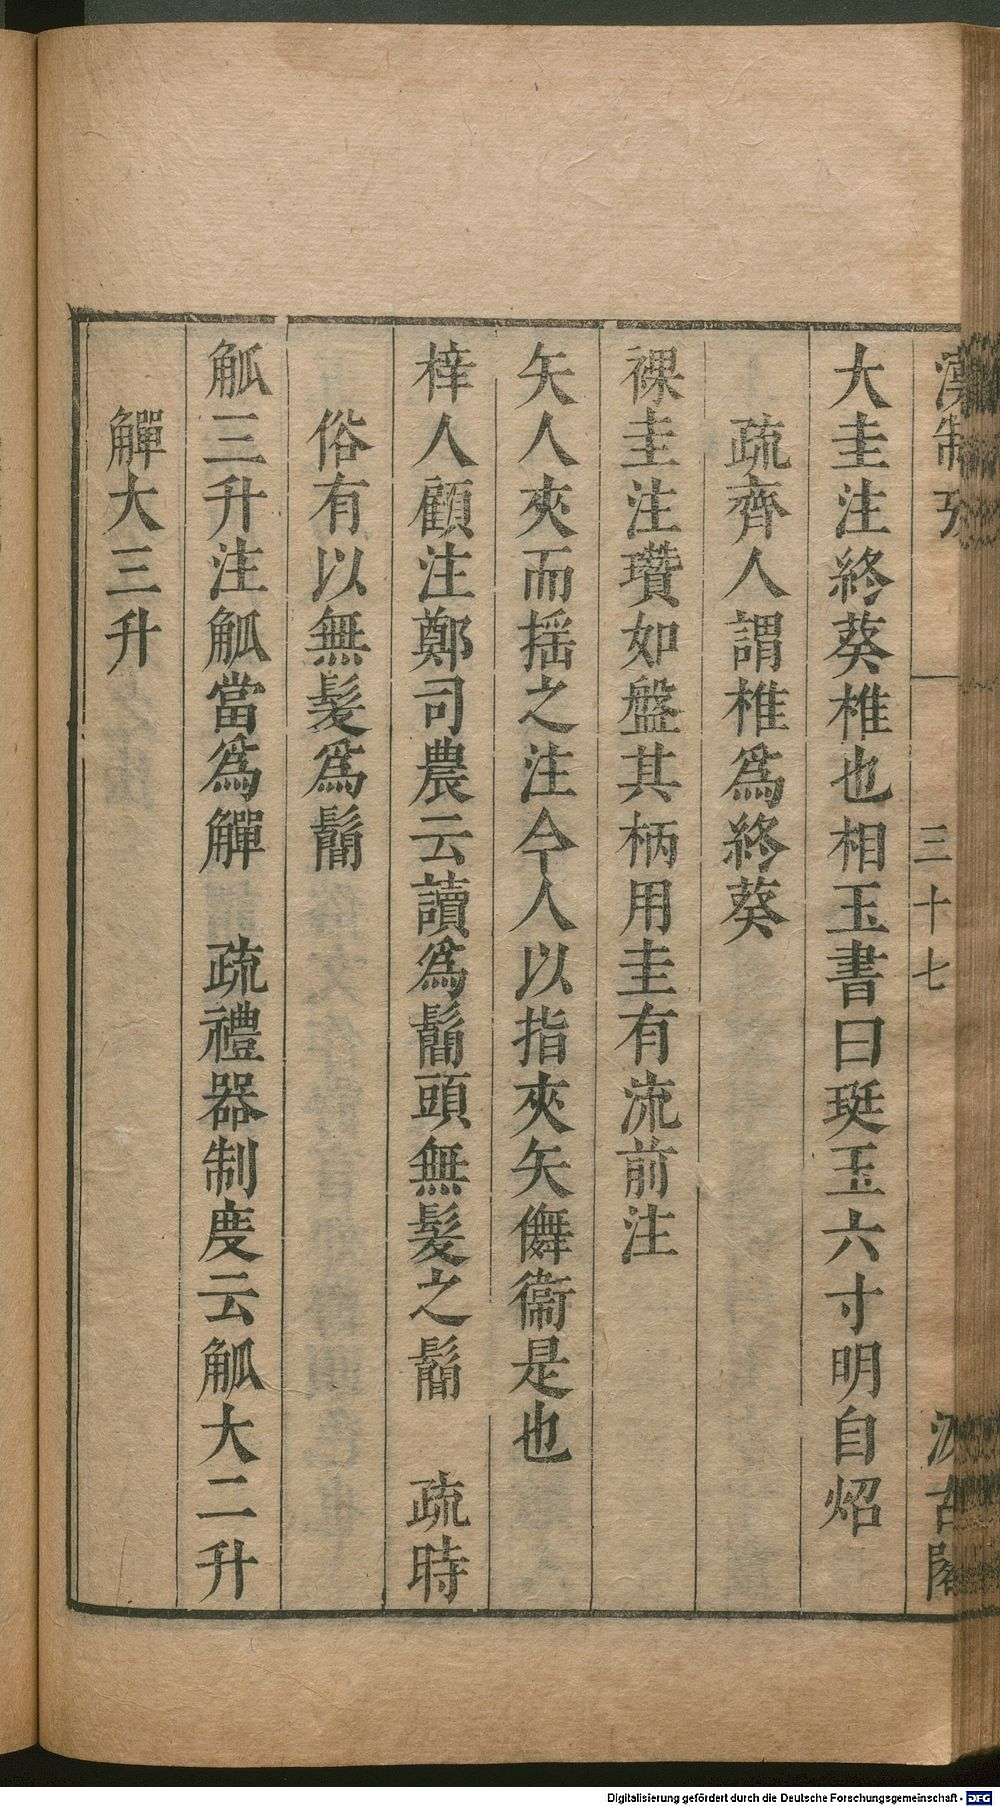 漢制攷
三十七
汲古閣
大圭注終葵椎也相玉書曰珽玉六寸明自炤
疏齊人謂椎爲終葵
祼圭注瓚如盤其柄用圭有流前注
矢人夾而揺之注今人以指夾矢儛衞是也
梓人顧注鄭司農云讀爲鬜頭無髮之鬜　疏時
俗有以無髮爲鬜
觚三升注觚當爲觶　疏禮器制度云觚大二升
觶大三升
Digitalisierung gefördert durch die Deutsche Forschungsgemeinschaft - DFG